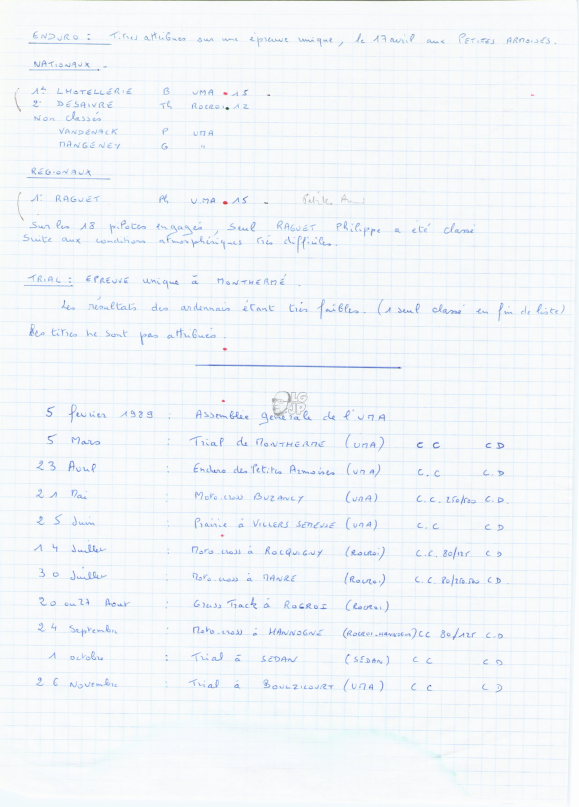 ENDURO : Titres attribués sur une épreuve unique, le 17 avril aux PETITES ARMOISES.
NATIONAUX.
1er LHOTELLERIE B UMA . 15 .
2e DESAIVRE Th ROCROI. 12
Non classés
VANDENACK P UMA
MANGENEY G "
REGIONAUX
1er RAGUET Ph U.MA . 15 . Petite Arm
Sur les 18 pilotes engagés, seul RAGUET Philippe a été classé
suite aux conditions atmosphériques très difficiles.
TRIAL : EPREUVE unique à MONTHERMÉ.
Les résultats des ardennais étant très faibles. (1 seul classé en fin de liste)
les titres ne sont pas attribués.
LG
JP
5 février 1989 : Assemblée générale de l'UMA
5 Mars : Trial de MONTHERME (UMA) C C C D
23 Avril : Enduro des Petites Armoises (UMA) C.C C.D
21 Mai : Moto-cross BUZANCY (UMA) C.C. 250/500 C.D.
25 Juin : Prairie à VILLERS SEMEUSE (UMA) C.C C D
14 Juillet : Moto cross à ROCQUIGNY (ROCROI) C.C. 80/125 C D
30 Juillet : Moto-cross à MANRE (ROCROI) C.C. 80/250.500 C D.
20 ou 27 Aout : Grass Track à ROCROI (ROCROI)
24 Septembre : Moto-cross à HANNOGNE (ROCROI-HANNOGNE) CC 80/125 C.D
1 octobre : Trial à SEDAN (SEDAN) C C C D
26 Novembre : Trial à BOULZICOURT (UMA) C C C D